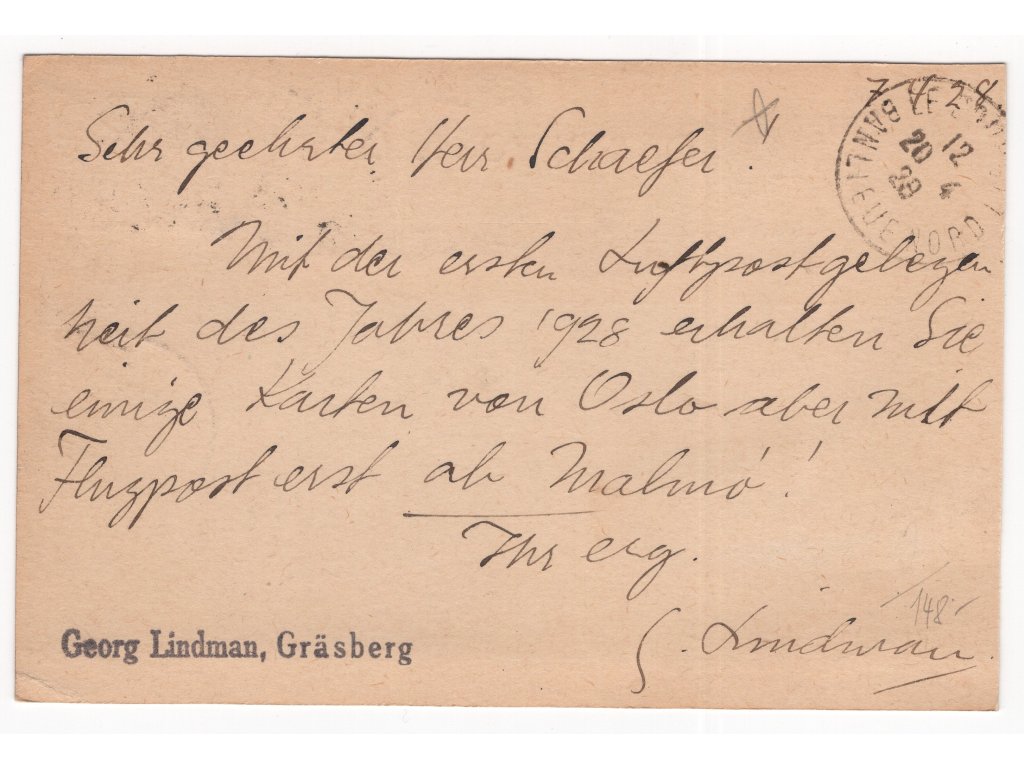 7 4 28
Sehr geehrter Herr Schaefer!
Mit der ersten Luftpostgelegen
heit des Jahres 1928 erhalten Sie
einige Karten von Oslo aber mit
Flugpost erst ab Malmö!
Ihr erg.
G. Lindman.
148
Georg Lindman, Gräsberg
LE BOURGET
12
20 4
28
BANLIEUE NORD